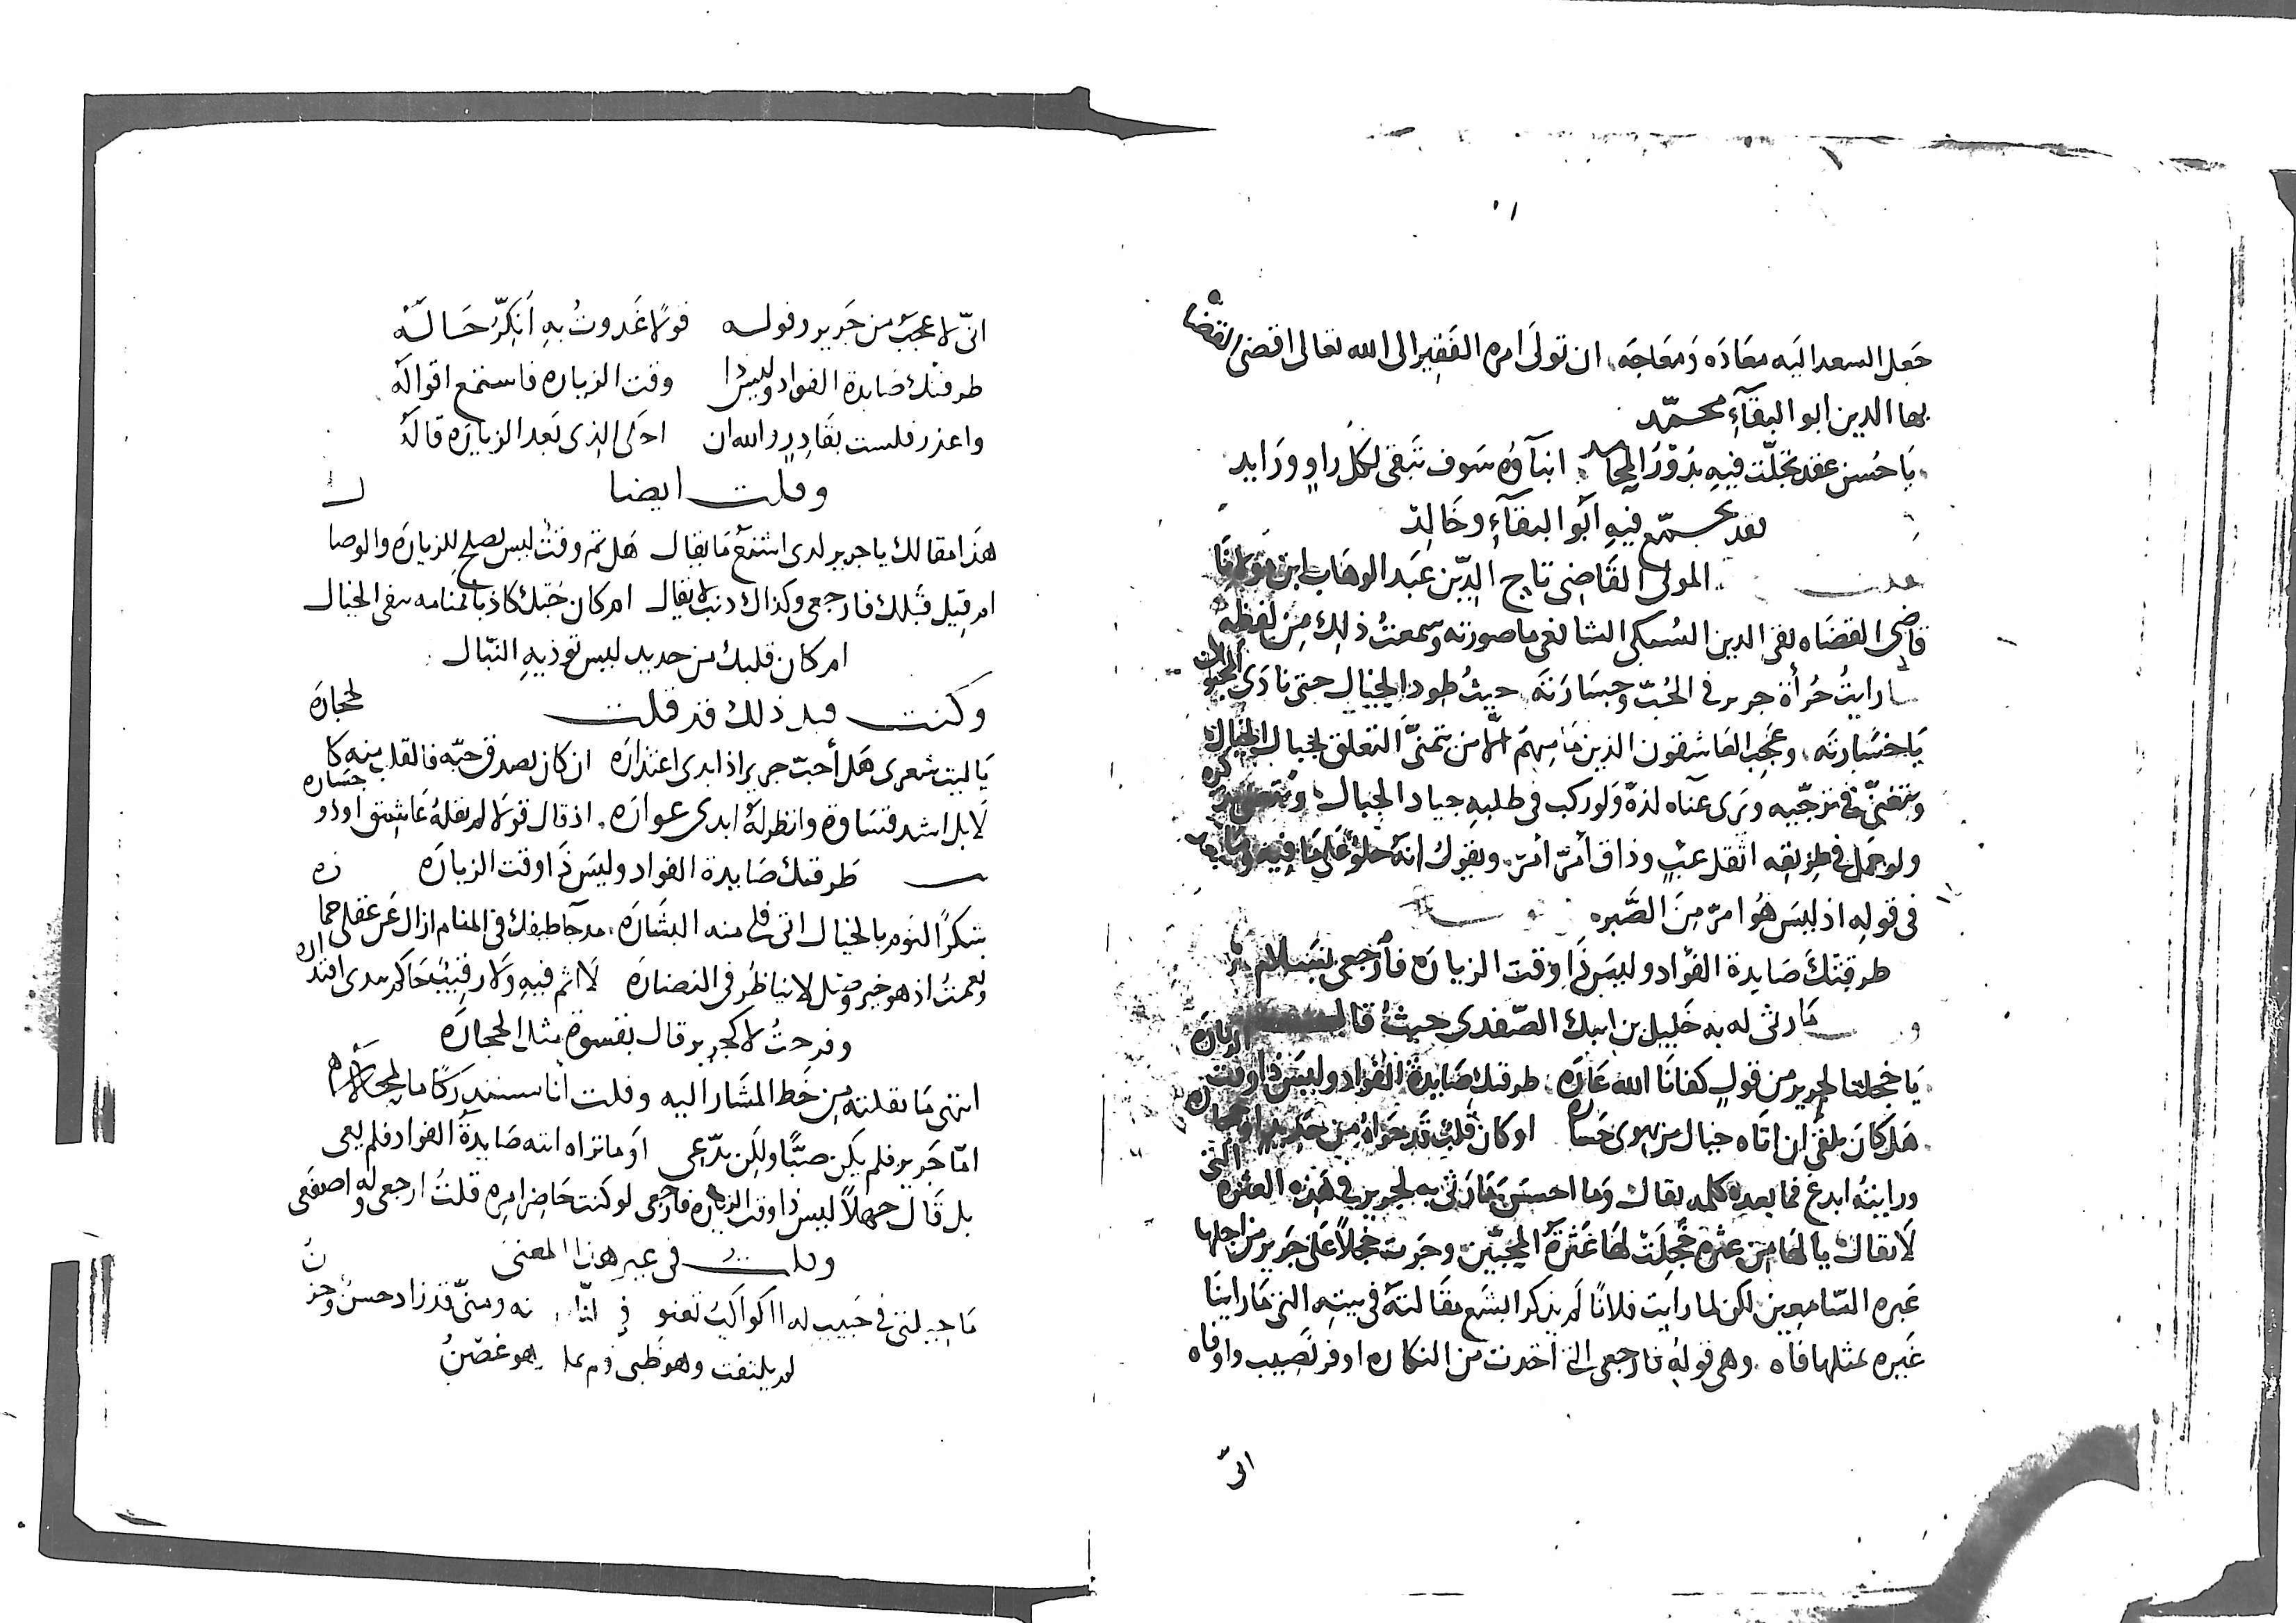 جعل السعد اليه معاده ومعاجه ان تولى امره الفقير الى الله تعالى اقضى القضاه
بها الدين ابو البقآء محمد
يا حسن عقد تجلت فيه بدور المحامد انبآؤه سوف تبقى لكل راو ورايد
لقد تجمع فيه ابو البقآء وخالد
المولى القاضى تاج الدين عبد الوهاب ابن مولانا
قاضى القضاه تقى الدين السبكى الشافعى ما صورته وسمعت ذلك من لفظه
رايت جرأة جرير فى الحب وجسارته حيث طرد الخيال حتى نادى
يا خسارته وعجب العاشقون الذين ما منهم الا من يتمنى التعلق بخيال الخيال
ويرى عناه لذة ولو ركب فى طلبه جياد الخيال
ولو حمل فى طريقه اثقل عبء وذاق أمر أمر ويقول انه حلو على ما فيه
فى قوله اذ ليس هو امر من الصبر
طرقتك صايدة الفؤاد وليس ذا وقت الزيارة فارجعى بسلام
ما رثى له به خليل بن ايبك الصفدى حيث قال
يا خجلتا لجرير من قول كفانا الله عاره طرقتك صايدة الفؤاد وليس ذا وقت الزيارة
هل كان يلقى ان اتاه خيال من يهوى خساره او كان قلب قد حواه من حديد او حجاره
ورايته ابدع فما بعده كلمه تقال وما احسن ما رثى به لجرير فى هذه العثره التى
لا تقال يا لها من عثره خجلت لها عثرة المحبين وجرت خجلا على جرير من اجلها
عبره السامعين لكن لما رايت فلانا لم يذكر ابشع مقالته فى بيته التى ما راينا
غيره بمثلها فاه وهى قوله فارجعى التى اخذت من النكاره اوفر نصيب واوفاه
انى
انى لاعجب من جرير وقوله قولا غدوت به انكر حاله
طرقتك صايدة الفواد وليس ذا وقت الزياره فاستمع اقواله
واعذر فلست بقادر والله ان احكى الذى بعد الزياره قاله
وقلت ايضا
هذا مقالك يا جرير لدى اشنع ما يقال هل ثم وقت ليس يصلح للزيارة والوصال
ام قيل قبلك فارجعى وكذاك ذنب لا يقال ام كان حبك كاذبا فمنامه ينفى الخيال
ام كان قلبك من حديد ليس تؤذيه النبال
وكنت قبل ذلك قد قلت
يا ليت شعرى هل أحب جرير اذ ابدى اعتذاره ان كان يصدق حبه فالقلب منه كالحجاره
لا بل اشد قساوة وانظر له ابدى عواره اذ قال قولا لم يقله عاشق او ذو جساره
طرقتك صايدة الفواد وليس ذا وقت الزياره
شكرا لنوم بالخيال اتى فلى منه البشاره مذ جآ طيفك فى المنام ازال عن عقلى خماره
ونعمت اذ هو خير وصل لا يناظر فى النضاره لا اثم فيه ولا رقيب حاكم يبدى اقتداره
وفرحت لا كجرير قال بقسوة مثل الحجاره
انتهى ما نقلته من خط المشار اليه وقلت انا
اما جرير فلم يكن صبا ولكن يدعى او ما تراه اتته صايدة الفواد فلم يعى
بل قال جهلا ليس ذا وقت الزياره فارجعى لو كنت حاضر امره قلت ارجعى وله اصفعى
وقلت فى غير هذا المعنى
ما حيلتى فى حبيب له ومنى قد زاد حسن وحزن
لم يلتفت وهو ظبى وهو غصن